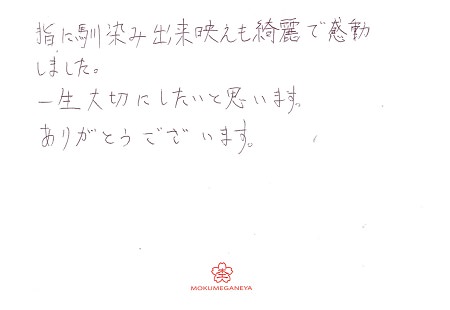 指に馴染み出来映えも綺麗で感動
しました。
一生大切にしたいと思います。
ありがとうございます。
MOKUMEGANEYA